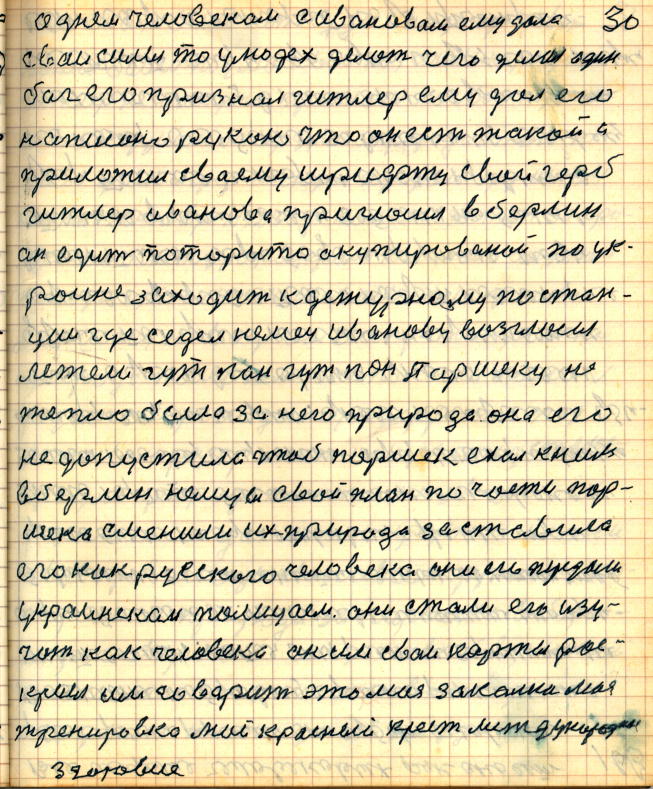 однем человеком сивановам ему дала 30
сваи силы то у людех делат чего делал один
бог его признал гитлер ему дал его
написано рукою что он ест такой а
приложил своему шрифту свой герб
гитлер иванова пригласил в берлин
ан едит потерито окупированой по ук-
роине заходит к дежурному по стан-
ции где седел немец иванову возглосил
летели гут пан гут пан Паршеку не
тепло было за него природа она его
не допустила чтоб паршек ехал кним
вберлин немцы свой план по части пар-
шека сменили их природа заставила
его как русского человека они его предали
украинскам полицаем. они стали его изу-
чат как человека он им сваи карты рас-
крыл им говарит это мая закалка мая
тренировка мой красный крест
здоровие